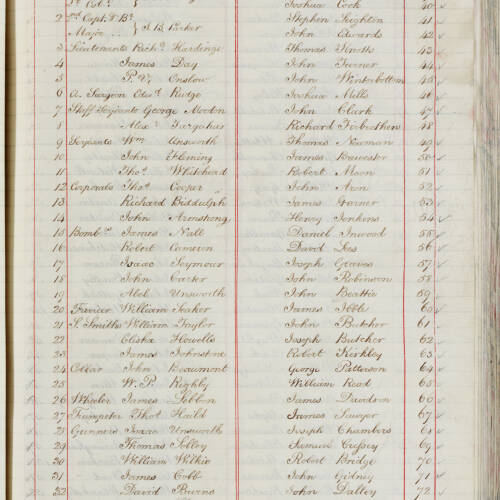 Joshua Cook 40
2 2d Capt. & Bt.
Stephen Leighton 41
Major
John Edwards 42
3 Lieutenants Richd. Hardinge
Thomas 43
4 James Day
John Turner 44
5 P. V. Onslow
John Winterbottom 45
6 A. Surgeon Edwd. Rudge
Joshua Mills 46
7 Staff Serjeants George Morton
John Clark 47
8 Alexr. Farquhar
Richard 48
9 Serjeants Wm. Unsworth
Thomas Newman 49
10 John Fleming
James 50
11 Thos. Whitehead
Robert Moon 51
12 Corporals Thos. Cooper
John Aron 52
13 Richard Biddulph
James Garner 53
14 John Armstrong
Henry Jenkins 54
15 Bombrs. James Nall
Daniel Inwood 55
16 Robert Cameron
David Lees 56
17 Isaac Seymour
Joseph Greaves 57
18 John Carter
John Robinson 58
19 Abel Unsworth
John Beattie 59
20 Farrier William Leaker
James Ibbe 60
21 S. Smiths William Taylor
John Butcher 61
22 Elisha Howells
Joseph Butcher 62
23 James Johnstone
Robert Kirkley 63
24 Collar John Beaumont
George Patterson 64
25 W. P. Righby
William Read 65
26 Wheeler James Lebbon
James Davidson 66
27 Trumpeter Thos. Haild
James Sawyer 67
28 Gunners Isaac Unsworth
Joseph Chambers 68
29 Thomas Selley
Samuel Cressey 69
30 William Wilkie
Robert Bridge 70
31 James Cobb
John Gidney 71
32 David Burns
John Dalley 72